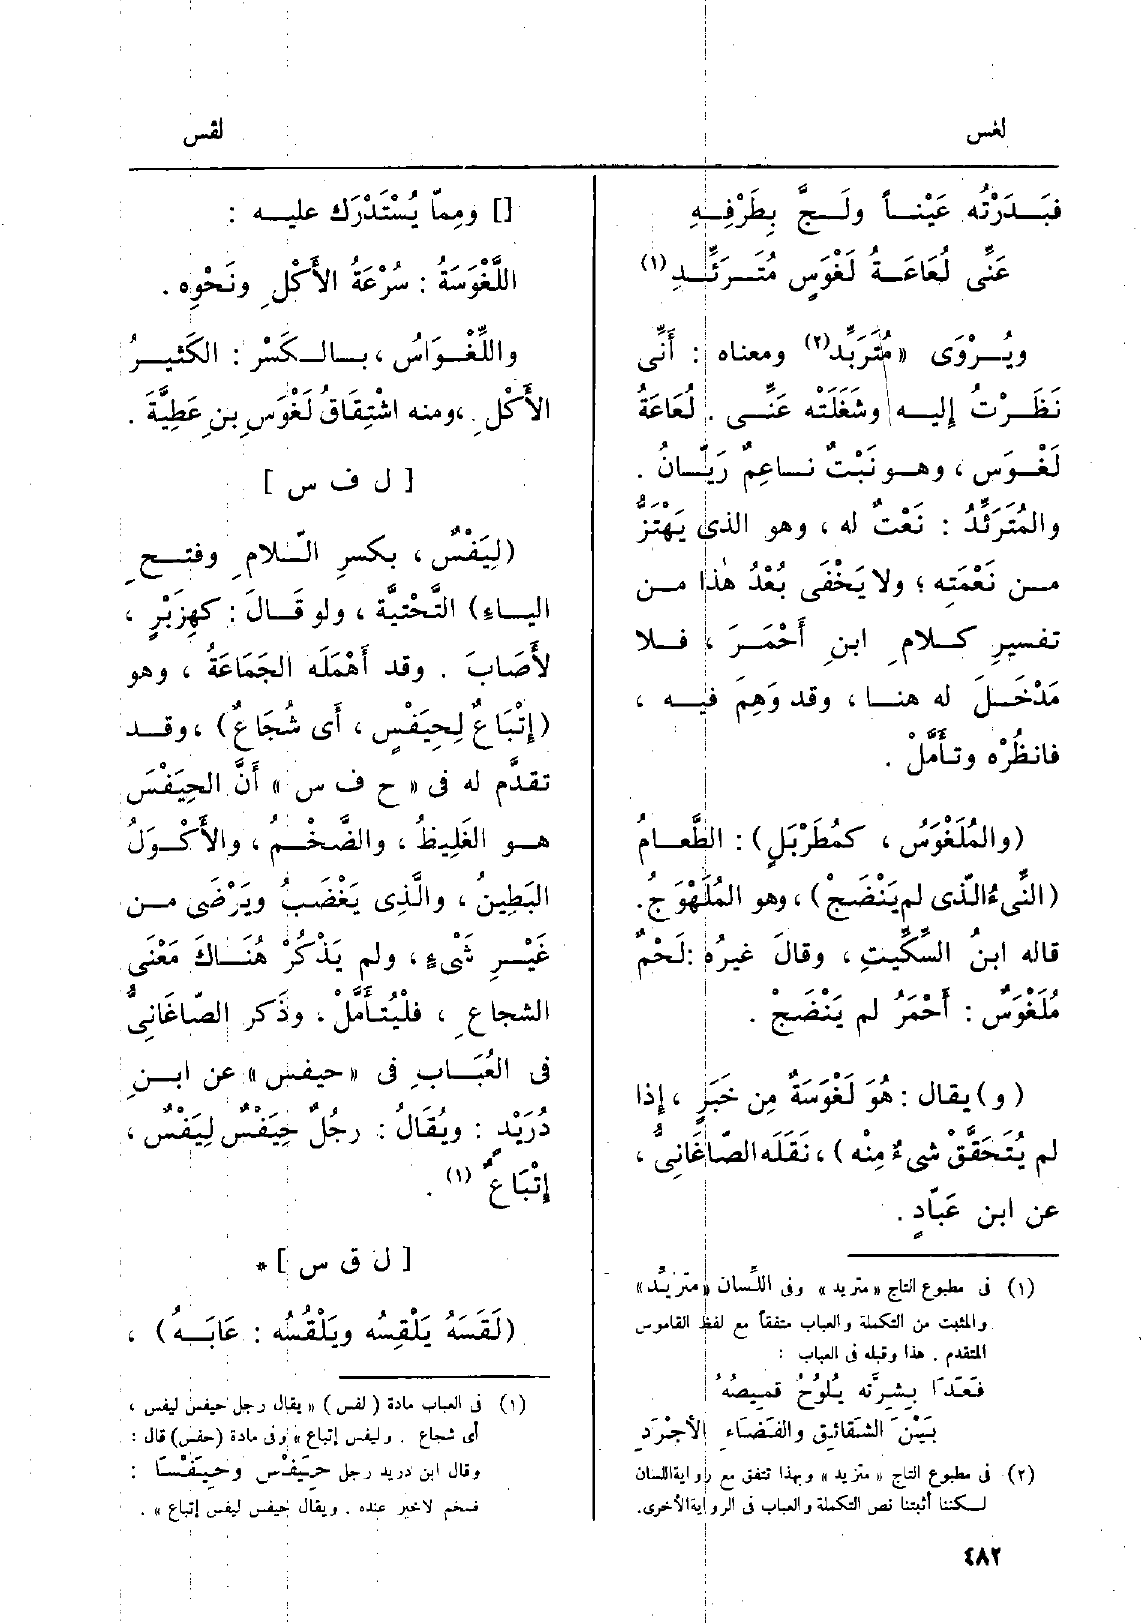 لغس
لقس
فَبَــدَرْتُه عَيْنــاً ولَــجَّ بِطَرْفِــهِ
عَنِّى لُعَاعَــةُ لَغْوَسٍ مُتَــرَئِّــدِ (١)
ويُــرْوَى «مُتَرَبِّد (٢) ومعناه : أَنِّى
نَظَــرْتُ إليــه وشَغَلَتْه عَنِّــى . لُعَاعَةُ
لَغْــوَسٍ ، وهــو نَبْتٌ نــاعِمٌ رَيّــانُ .
والمُتَرَئِّدُ : نَعْتٌ له ، وهو الذى يَهْتَزُّ
مــن نَعْمَتِه ؛ ولا يَخْفَى بُعْدُ هٰذا مــن
تفسيرِ كــلامِ ابنِ أَحْمَرَ ، فــلا
مَدْخَــلَ له هنــا ، وقد وَهِمَ فيــه ،
فانظُرْه وتأَمَّلْ .
(والمُلَغْوَسُ ، كمُطَرْبَلٍ) : الطَّعــامُ
(النِّىءُ الّذى لم يَنْضَجْ) ، وهو المُلَهْوَجُ.
قاله ابنُ السِّكِّيتِ ، وقالَ غيرُه : لَحْمٌ
مُلَغْوَسٌ : أَحْمَرُ لم يَنْضَجْ .
(و) يقال : هُوَ لَغْوَسَةٌ مِن خَبَرٍ ، إذا
لم يُتَحَقَّقْ شىءٌ مِنْه) ، نَقَلَه الصّاغَانِىُّ ،
عن ابن عَبّادٍ .
(١) فى مطبوع التاج «متريد» وفى اللسان «متريِّد»
والمثبت من التكملة والعباب متفقاً مع لفظ القاموس
المتقدم . هذا وقبله فى العباب :
فَغَدَا بِشِرَّتِه يَلُوحُ قميصُهُ
بَيْنَ الشقائِقِ والفَضَاءِ الأجْرَدِ
(٢) فى مطبوع التاج «متزيد» وبهذا تتفق مع رواية اللسان
لــكننا أثبتنا نص التكملة والعباب فى الرواية الأخرى.
[] ومِمّا يُسْتَدْرَك عليــه :
اللَّغْوَسَةُ : سُرْعَةُ الأَكْلِ ونَحْوِه .
واللِّغْــوَاسُ ، بــالــكَسْرِ : الكَثِيــرُ
الأَكْلِ ، ومنه اشْتِقَاقُ لَغْوَسِ بنِ عَطِيَّةَ .
[ ل ف س ]
(لِيَفْسٌ ، بكسرِ الّلامِ وفتــحِ
اليــاءِ) التَّحْتِيَّة ، ولو قَــالَ : كهِزَبْرٍ ،
لأَصَابَ . وقد أَهْمَلَه الجَمَاعَةُ ، وهو
(إِتْبَاعٌ لِحِيَفْسٍ ، أى شُجَاعٌ) ، وقــد
تقدَّم له فى «ح ف س» أَنَّ الحِيَفْسَ
هــو الغَلِيظُ ، والضَّخْــمُ ، والأَكُــولُ
البَطِينُ ، والَّذِى يَغْضَبُ ويَرْضَى مــن
غَيْــرِ شَىْءٍ ، ولم يَذْكُرْ هُنَــاكَ مَعْنَى
الشجاعِ ، فلْيُتأَمَّلْ . وذَكر الصّاغَانِىُّ
فى العُبَــابِ فى «حيفس» عن ابــنِ
دُرَيْدٍ : ويُقَالُ : رجُلٌ حِيَفْسٌ لِيَفْسٌ ،
إِتْبَاعٌ (١) .
[ ل ق س ] *
(لَقَسَهُ يَلْقِسُه ويَلْقُسُه : عَابَــهُ) ،
(١) فى العباب مادة (لفس) «يقال رجل حيفس ليفس ،
أى شجاع . وليفس إتباع» وفى مادة (حفس) قال :
وقال ابن دريد رجل حِيَفْس وحَيْفَسَا :
ضخم لا خير عنده . ويقال حيفس ليفس إتباع» .
٤٨٢